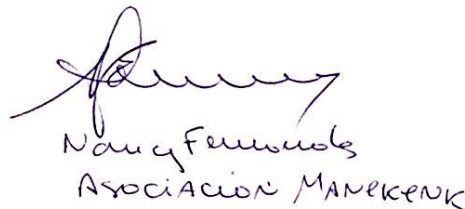 Nancy Fernandez
ASOCIACION MANEKENK